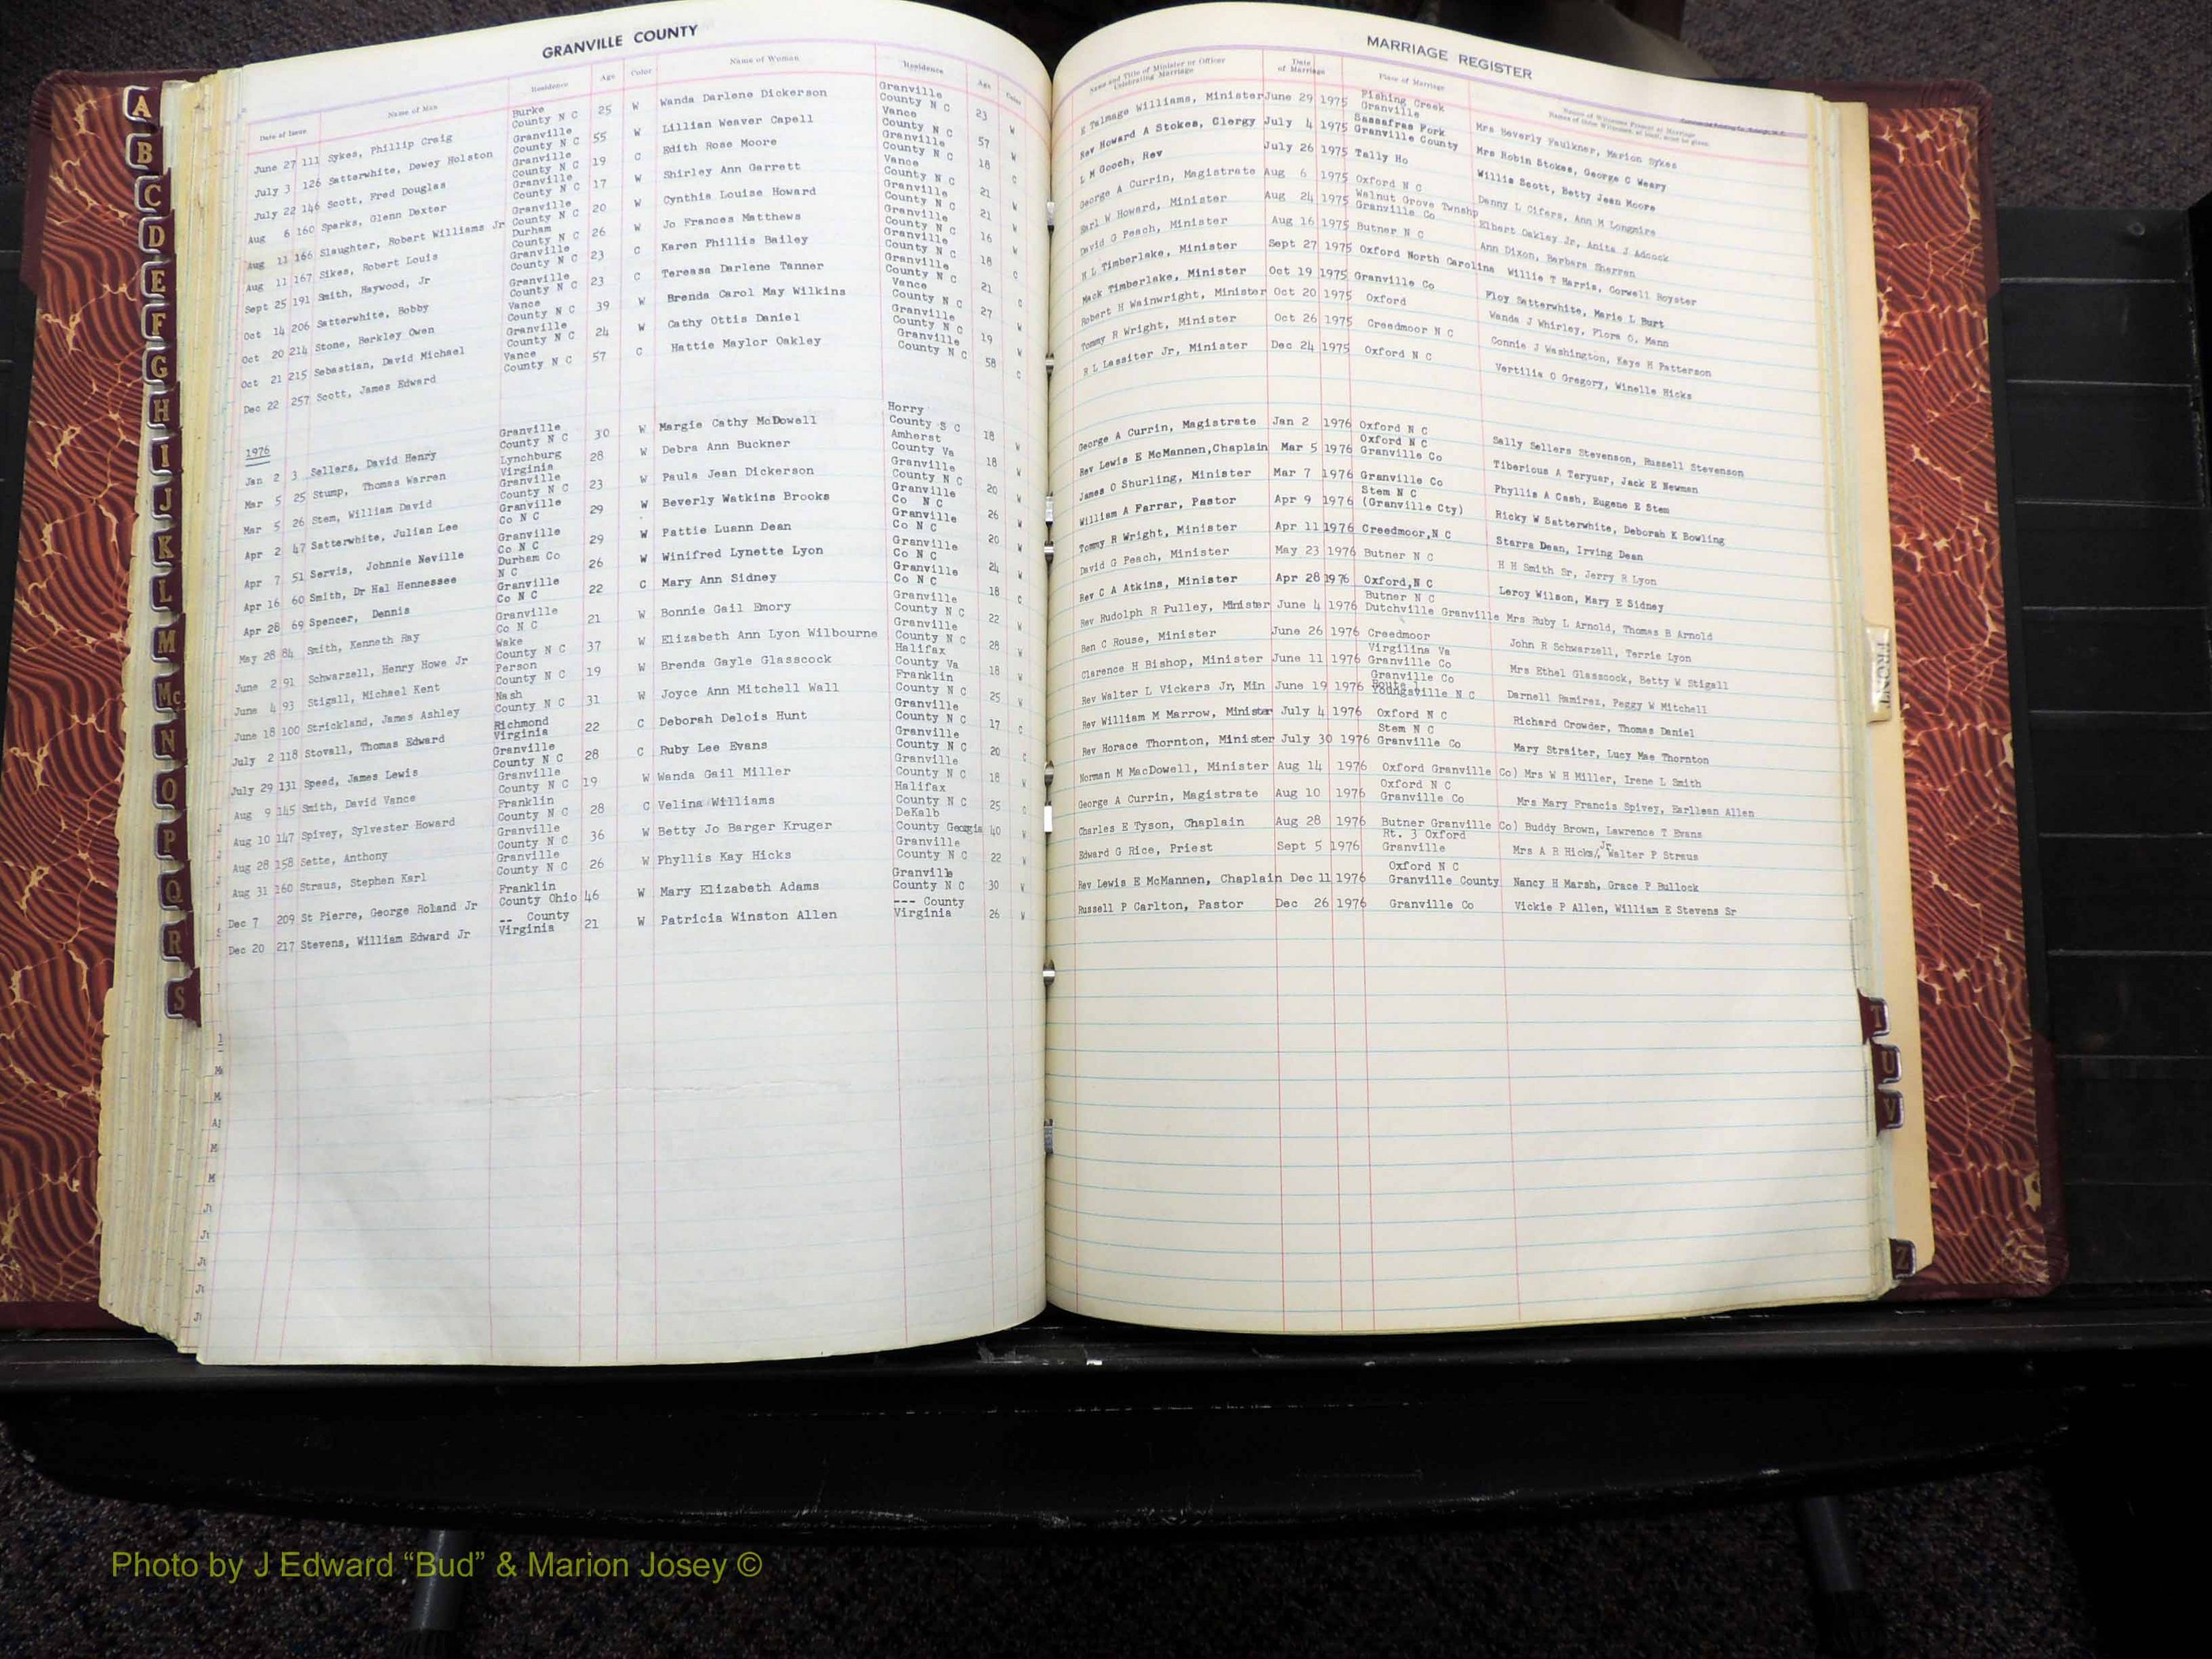 GRANVILLE COUNTY
Date of Issue Name of Man Residence Age Color Name of Woman Residence Age Color
June 27 111 Sykes, Phillip Craig Burke County N C 25 W Wanda Darlene Dickerson Granville County N C 23 W
July 3 126 Satterwhite, Dewey Holston Granville County N C 55 W Lillian Weaver Capell Vance County N C 57 W
July 22 146 Scott, Fred Douglas Granville County N C 19 C Edith Rose Moore Granville County N C 18 C
Aug 6 160 Sparks, Glenn Dexter Granville County N C 17 W Shirley Ann Garrett Vance County N C 21 W
Aug 11 166 Slaughter, Robert Williams Jr Granville County N C 20 W Cynthia Louise Howard Granville County N C 21 W
Aug 11 167 Sikes, Robert Louis Durham County N C 26 W Jo Frances Matthews Granville County N C 16 W
Sept 25 191 Smith, Haywood, Jr Granville County N C 23 C Karen Phillis Bailey Granville County N C 18 C
Oct 14 206 Satterwhite, Bobby Granville County N C 23 C Tereasa Darlene Tanner Granville County N C 21 C
Oct 20 214 Stone, Berkley Owen Vance County N C 39 W Brenda Carol May Wilkins Vance County N C 27 W
Oct 21 215 Sebastian, David Michael Granville County N C 24 W Cathy Ottis Daniel Granville County N C 19 W
Dec 22 257 Scott, James Edward Vance County N C 57 C Hattie Maylor Oakley Granville County N C 58 C
1976
Jan 2 3 Sellers, David Henry Granville County N C 30 W Margie Cathy McDowell Horry County S C 18 W
Mar 5 25 Stump, Thomas Warren Lynchburg Virginia 28 W Debra Ann Buckner Amherst County Va 18 W
Mar 5 26 Stem, William David Granville County N C 23 W Paula Jean Dickerson Granville County N C 20 W
Apr 2 47 Satterwhite, Julian Lee Granville Co N C 29 W Beverly Watkins Brooks Granville Co N C 26 W
Apr 7 51 Servis, Johnnie Neville Granville Co N C 29 W Pattie Luann Dean Granville Co N C 20 W
Apr 16 60 Smith, Dr Hal Hennessee Durham Co N C 26 W Winifred Lynette Lyon Granville Co N C 24 W
Apr 28 69 Spencer, Dennis Granville Co N C 22 C Mary Ann Sidney Granville Co N C 18 C
May 28 84 Smith, Kenneth Ray Granville Co N C 21 W Bonnie Gail Emory Granville County N C 22 W
June 2 91 Schwarzell, Henry Howe Jr Wake County N C 37 W Elizabeth Ann Lyon Wilbourne Granville County N C 28 W
June 4 93 Stigall, Michael Kent Person County N C 19 W Brenda Gayle Glasscock Halifax County Va 18 W
June 18 100 Strickland, James Ashley Nash County N C 31 W Joyce Ann Mitchell Wall Franklin County N C 25 W
July 2 118 Stovall, Thomas Edward Richmond Virginia 22 C Deborah Delois Hunt Granville County N C 17 C
July 29 131 Speed, James Lewis Granville County N C 28 C Ruby Lee Evans Granville County N C 20 C
Aug 9 145 Smith, David Vance Granville County N C 19 W Wanda Gail Miller Granville County N C 18 W
Aug 10 147 Spivey, Sylvester Howard Franklin County N C 28 C Velina Williams Halifax County N C 25 C
Aug 28 158 Sette, Anthony Granville County N C 36 W Betty Jo Barger Kruger DeKalb County Georgia 40 W
Aug 31 160 Straus, Stephen Karl Granville County N C 26 W Phyllis Kay Hicks Granville County N C 22 W
Dec 7 209 St Pierre, George Roland Jr Franklin County Ohio 46 W Mary Elizabeth Adams Granville County N C 30 W
Dec 20 217 Stevens, William Edward Jr -- County Virginia 21 W Patricia Winston Allen --- County Virginia 26 W
MARRIAGE REGISTER
Name and Title of Minister or Officer Celebrating Marriage Date of Marriage Place of Marriage Names of Witnesses Present at Marriage
E Talmage Williams, Minister June 29 1975 Fishing Creek Granville Mrs Beverly Faulkner, Marion Sykes
Rev Howard A Stokes, Clergy July 4 1975 Sassafras Fork Granville County Mrs Robin Stokes, George C Weary
L M Gooch, Rev July 26 1975 Tally Ho Willie Scott, Betty Jean Moore
George A Currin, Magistrate Aug 6 1975 Oxford N C Danny L Cifers, Ann M Longmire
Earl W Howard, Minister Aug 24 1975 Walnut Grove Twnshp Granville Co Elbert Oakley Jr, Anita J Adcock
David G Peach, Minister Aug 16 1975 Butner N C Ann Dixon, Barbara Sherron
H L Timberlake, Minister Sept 27 1975 Oxford North Carolina Willie T Harris, Corwell Royster
Mack Timberlake, Minister Oct 19 1975 Granville Co Floy Satterwhite, Marie L Burt
Robert H Wainwright, Minister Oct 20 1975 Oxford Wanda J Whirley, Flora O. Mann
Tommy R Wright, Minister Oct 26 1975 Creedmoor N C Connie J Washington, Kaye H Patterson
R L Lassiter Jr, Minister Dec 24 1975 Oxford N C Vertilia O Gregory, Winelle Hicks
George A Currin, Magistrate Jan 2 1976 Oxford N C Sally Sellers Stevenson, Russell Stevenson
Rev Lewis E McMannen, Chaplain Mar 5 1976 Oxford N C Granville Co Tiberious A Teryuar, Jack E Newman
James O Shurling, Minister Mar 7 1976 Granville Co Phyllis A Cash, Eugene E Stem
William A Farrar, Pastor Apr 9 1976 Stem N C (Granville Cty) Ricky W Satterwhite, Deborah K Bowling
Tommy R Wright, Minister Apr 11 1976 Creedmoor, N C Starra Dean, Irving Dean
David G Peach, Minister May 23 1976 Butner N C H H Smith Sr, Jerry R Lyon
Rev C A Atkins, Minister Apr 28 1976 Oxford, N C Leroy Wilson, Mary E Sidney
Rev Rudolph R Pulley, Minister June 4 1976 Butner N C Dutchville Granville Mrs Ruby L Arnold, Thomas B Arnold
Ben C Rouse, Minister June 26 1976 Creedmoor John R Schwarzell, Terrie Lyon
Clarence H Bishop, Minister June 11 1976 Virgilina Va Granville Co Mrs Ethel Glasscock, Betty W Stigall
Rev Walter L Vickers Jr, Min June 19 1976 Granville Co Route 1 Youngsville N C Darnell Ramirez, Peggy W Mitchell
Rev William M Marrow, Minister July 4 1976 Oxford N C Richard Crowder, Thomas Daniel
Rev Horace Thornton, Minister July 30 1976 Stem N C Granville Co Mary Straiter, Lucy Mae Thornton
Norman M MacDowell, Minister Aug 14 1976 Oxford Granville Co) Mrs W H Miller, Irene L Smith
George A Currin, Magistrate Aug 10 1976 Oxford N C Granville Co Mrs Mary Francis Spivey, Earllean Allen
Charles E Tyson, Chaplain Aug 28 1976 Butner Granville Co) Buddy Brown, Lawrence T Evans
Edward G Rice, Priest Sept 5 1976 Rt. 3 Oxford Granville Mrs A R Hicks/, Jr Walter P Straus
Rev Lewis E McMannen, Chaplain Dec 11 1976 Oxford N C Granville County Nancy H Marsh, Grace P Bullock
Russell P Carlton, Pastor Dec 26 1976 Granville Co Vickie P Allen, William E Stevens Sr
A
B
C
D
E
F
G
H
I
J
K
L
M
Mc
N
O
P
Q
R
S
T
U
V
Z
FRONT
Photo by J Edward “Bud” & Marion Josey ©